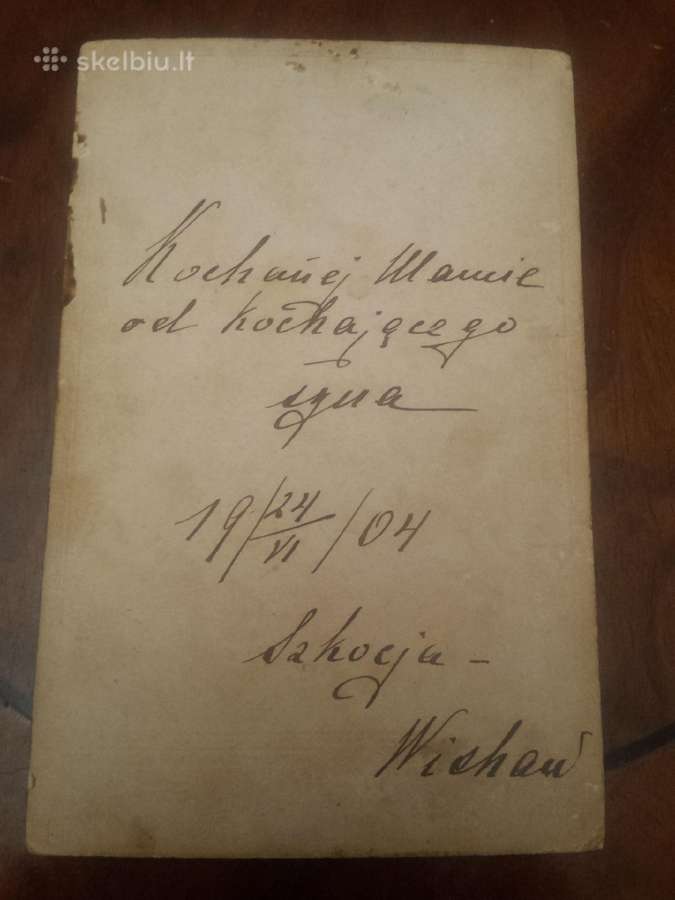 skelbiu.lt
Kochanej Mamie
od kochającego
syna
19/24/VI/04
Szkocja -
Wishaw